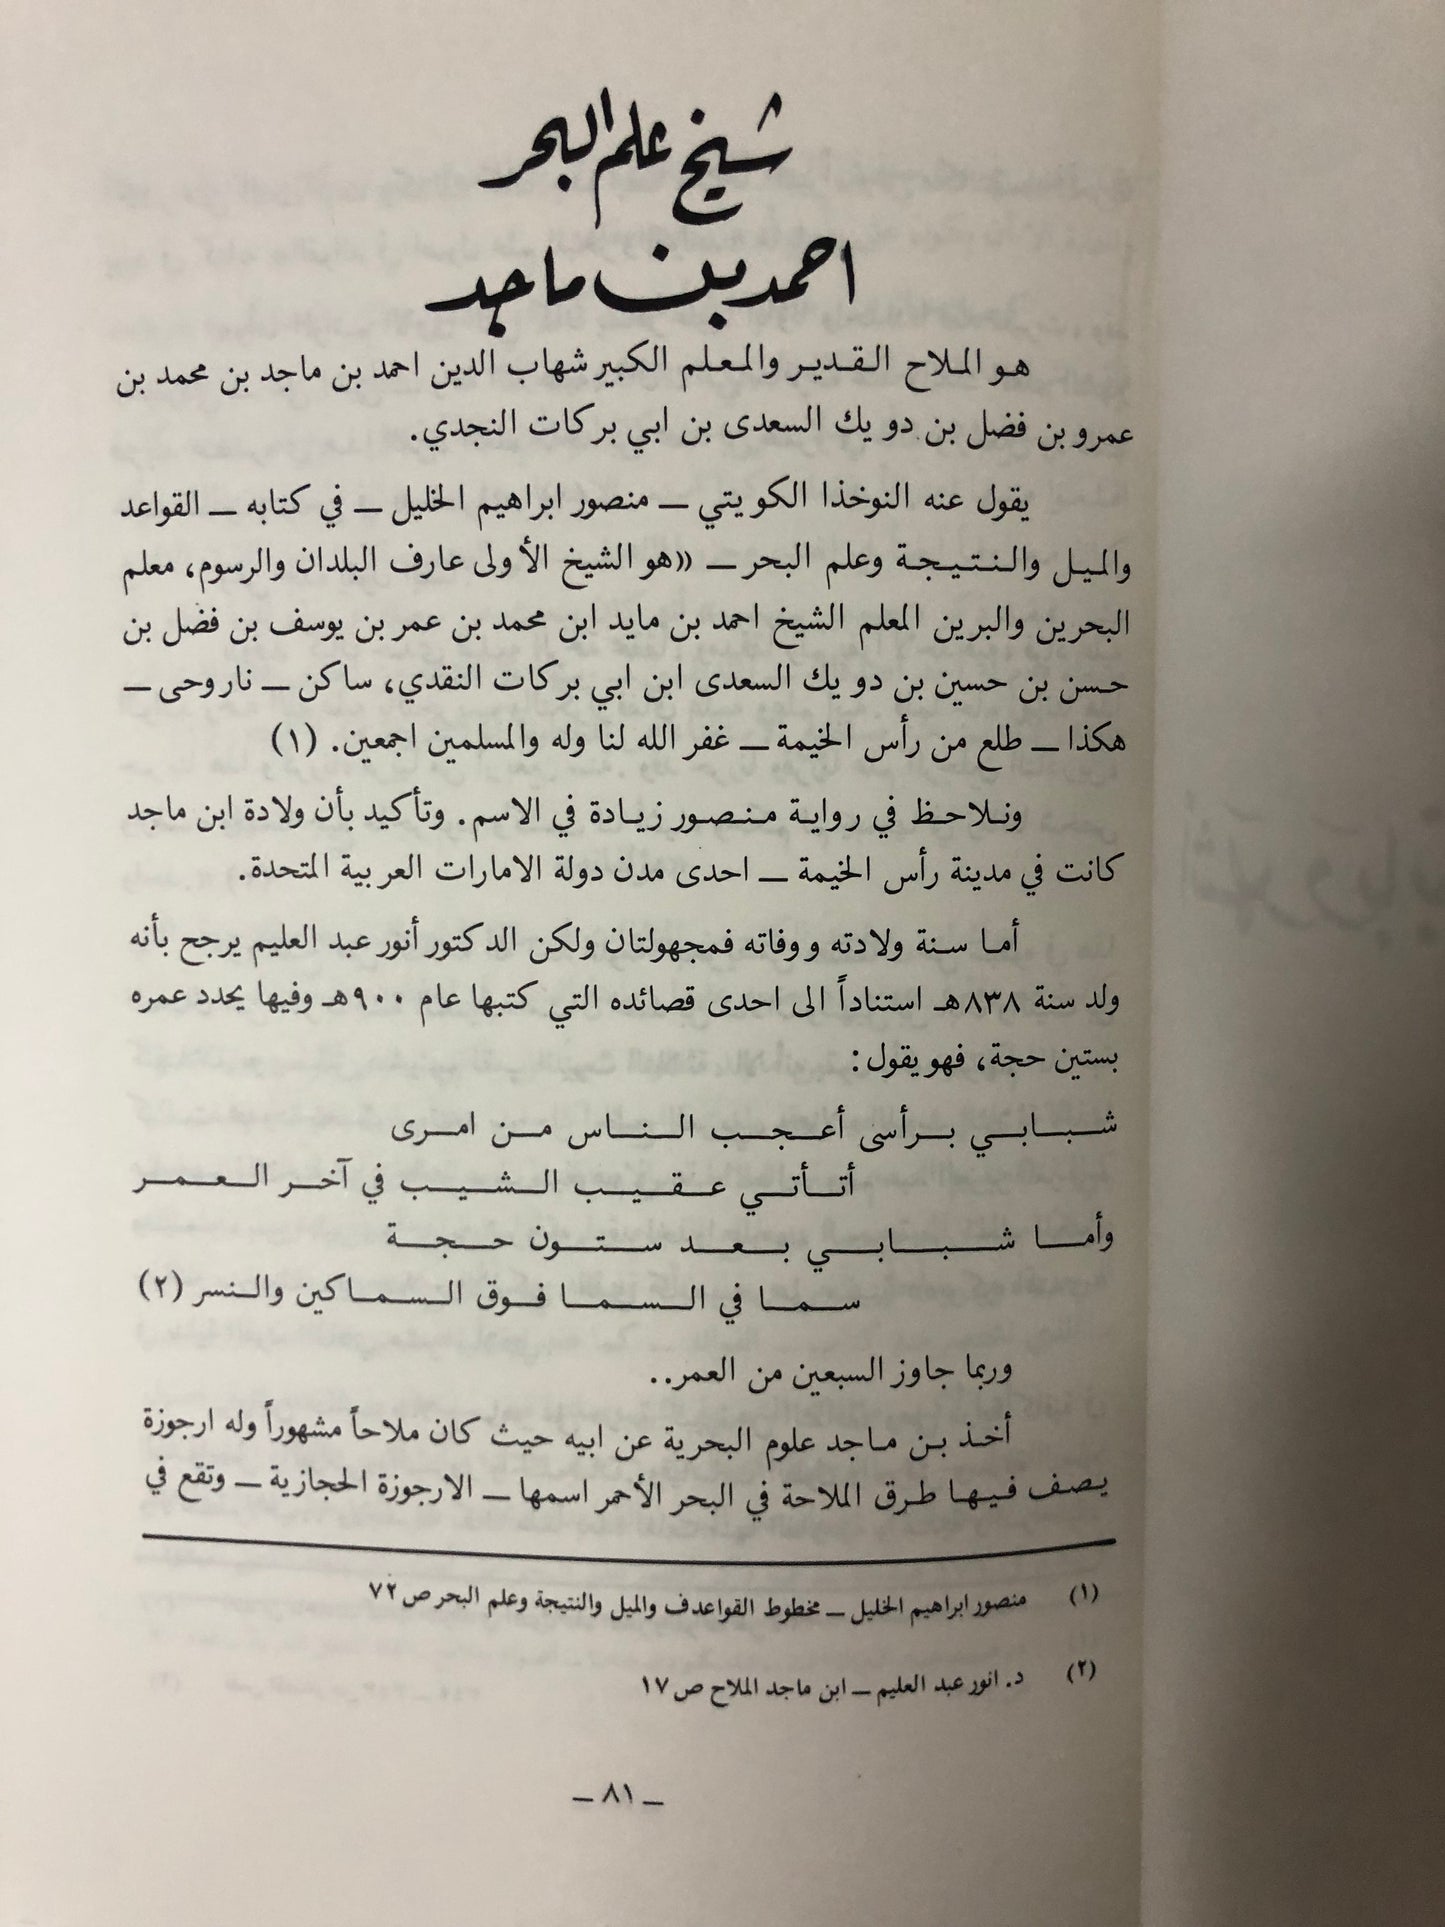 شيخ علم البحر
احمد بن ماجد
هو الملاح القدير والمعلم الكبير شهاب الدين احمد بن ماجد بن محمد بن
عمرو بن فضل بن دويك السعدى بن ابي بركات النجدي.
يقول عنه النوخذا الكويتي ــ منصور ابراهيم الخليل ــ في كتابه ــ القواعد
والميل والنتيجة وعلم البحر ــ «هو الشيخ الأولى عارف البلدان والرسوم، معلم
البحرين والبرين المعلم الشيخ احمد بن مايد ابن محمد بن عمر بن يوسف بن فضل بن
حسن بن حسين بن دويك السعدى ابن ابي بركات النقدي، ساكن ــ ناروحى ــ
هكذا ــ طلع من رأس الخيمة ــ غفر الله لنا وله والمسلمين اجمعين. (١)
ونلاحظ في رواية منصور زيادة في الاسم. وتأكيد بأن ولادة ابن ماجد
كانت في مدينة رأس الخيمة ــ احدى مدن دولة الامارات العربية المتحدة.
أما سنة ولادته ووفاته فمجهولتان ولكن الدكتور أنور عبد العليم يرجح بأنه
ولد سنة ٨٣٨هـ استناداً الى احدى قصائده التي كتبها عام ٩٠٠هـ وفيها يحدد عمره
بستين حجة، فهو يقول:
شبابي برأسى أعجب الناس من امرى
أتأتي عقيب الشيب في آخر العمر
وأما شبابي بعد ستون حجة
سما في السما فوق السماكين والنسر (٢)
وربما جاوز السبعين من العمر..
أخذ بن ماجد علوم البحرية عن ابيه حيث كان ملاحاً مشهوراً وله ارجوزة
يصف فيها طرق الملاحة في البحر الأحمر اسمها ــ الارجوزة الحجازية ــ وتقع في
(١) منصور ابراهيم الخليل ــ مخطوط القواعدف والميل والنتيجة وعلم البحر ص ٧٢
(٢) د. انور عبد العليم ــ ابن ماجد الملاح ص ١٧
ــ ٨١ ــ